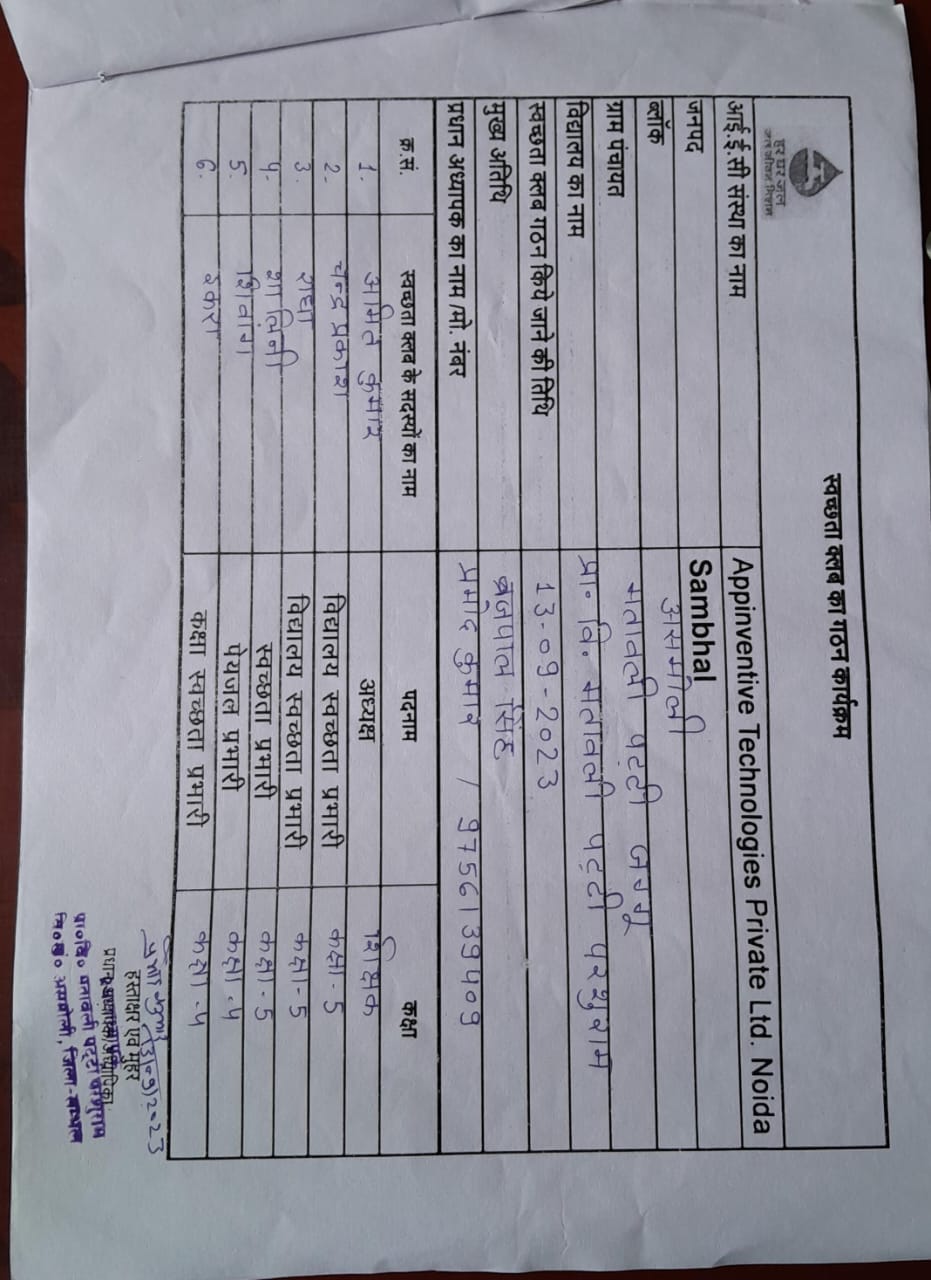 हर घर जल
जल जीवन मिशन
स्वच्छता क्लब का गठन कार्यक्रम
आई.ई.सी संस्था का नाम Appinventive Technologies Private Ltd. Noida
जनपद Sambhal
ब्लॉक असमोली
ग्राम पंचायत मतावली पट्टी जग्गू
विद्यालय का नाम प्रा० वि० मतावली पट्टी परशुराम
स्वच्छता क्लब गठन किये जाने की तिथि 13-09-2023
मुख्य अतिथि ब्रजपाल सिंह
प्रधान अध्यापक का नाम /मो. नंबर प्रमोद कुमार / 9756139409
क्र.सं. स्वच्छता क्लब के सदस्यों का नाम पदनाम कक्षा
1. अमित कुमार अध्यक्ष शिक्षक
2. चन्द्र प्रकाश विद्यालय स्वच्छता प्रभारी कक्षा - 5
3. राधा विद्यालय स्वच्छता प्रभारी कक्षा - 5
4. शालिनी स्वच्छता प्रभारी कक्षा - 5
5. शिवांगी पेयजल प्रभारी कक्षा - 4
6. इकरा कक्षा स्वच्छता प्रभारी कक्षा - 4
हस्ताक्षर एवं मुहर
प्रा०वि० मतावली पट्टी परशुराम
वि०खं० असमोली, जिला-सम्भल